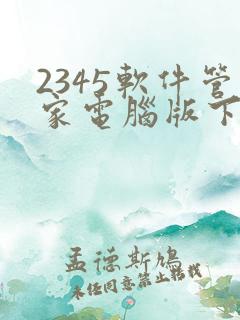 2345軟件管
家電腦版下
孟德斯鳩
未經同意禁止轉載